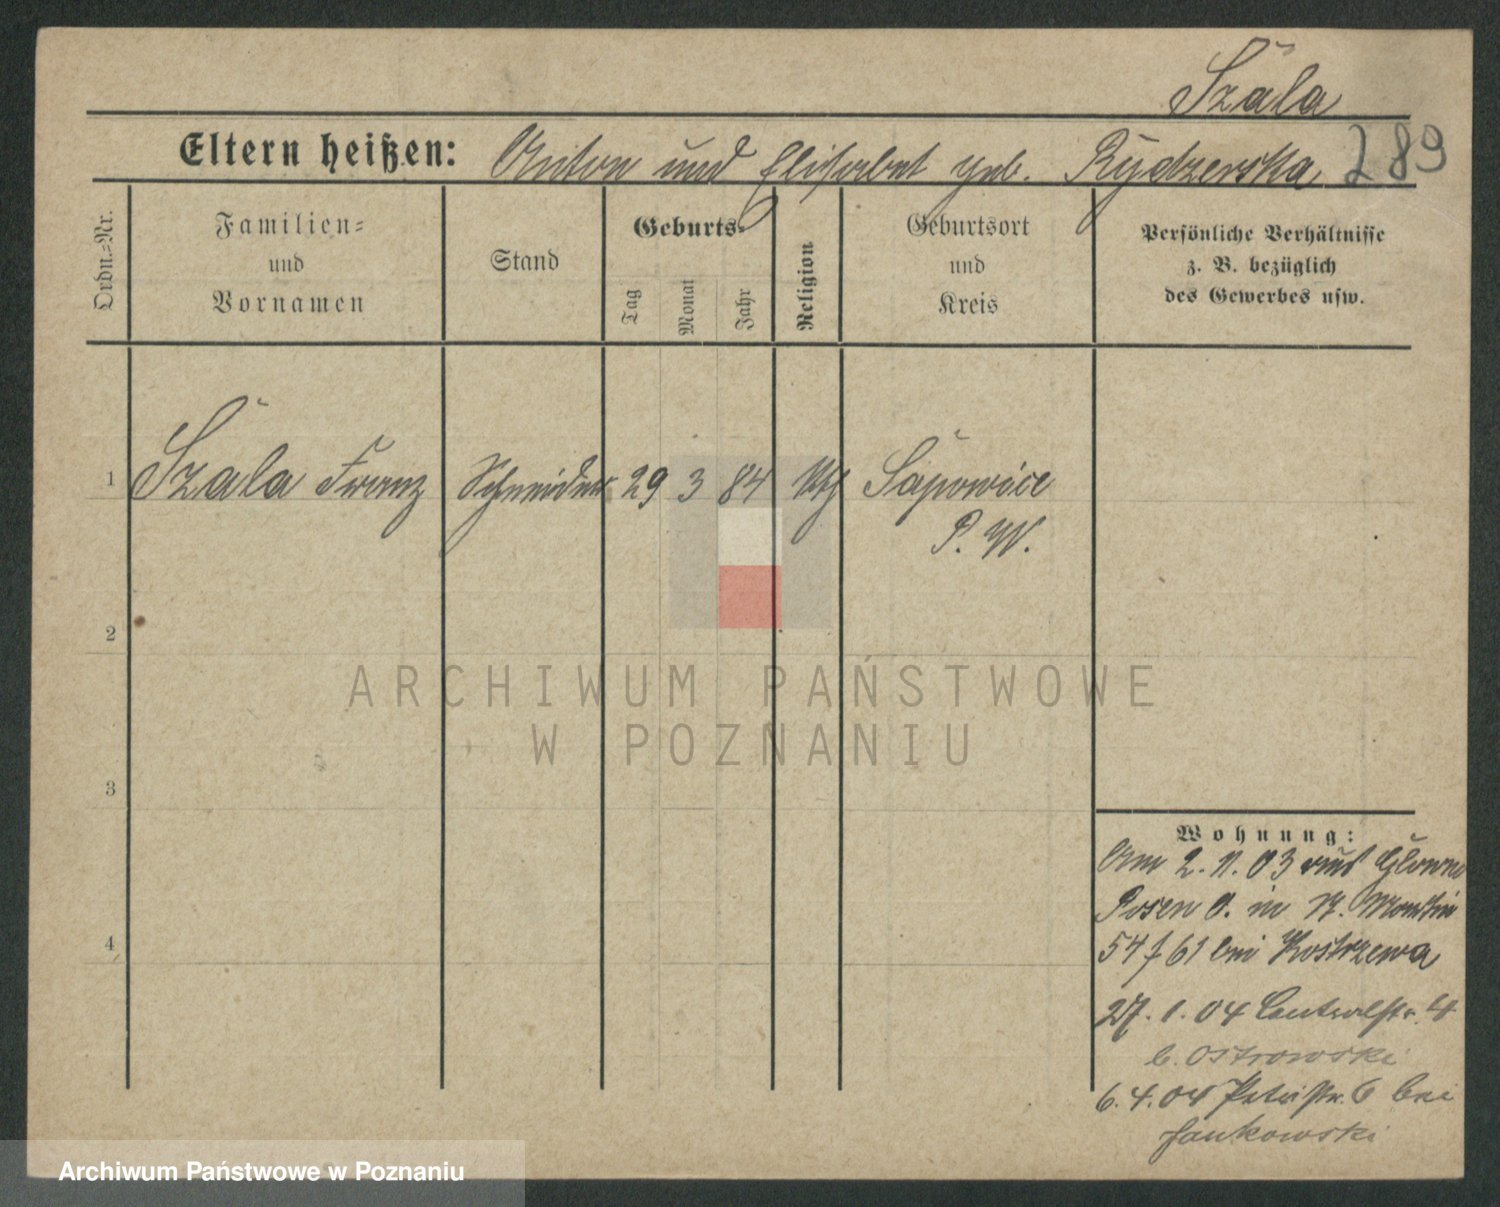 Szala
Eltern heißen: Anton und Elisabet geb. Rydzewska 289
Ordn.=Nr.
Familien=
und
Vornamen
Stand
Geburts=
Tag
Monat
Jahr
Religion
Geburtsort
und
Kreis
Persönliche Verhältnisse
z. B. bezüglich
des Gewerbes usw.
1 Szala Franz Schneider 29 3 84 kth Sapowice
P. W.
2
3
4
Wohnung:
Am 2. 1. 03 aus Glowno
Posen O. in St. Martin
54 f 61 bei Kostrzewa
27. 1. 04 Centralstr. 4
b. Ostrowski
6. 4. 04 Petristr. 6 bei
Jankowski
ARCHIWUM PAŃSTWOWE
W POZNANIU
Archiwum Państwowe w Poznaniu